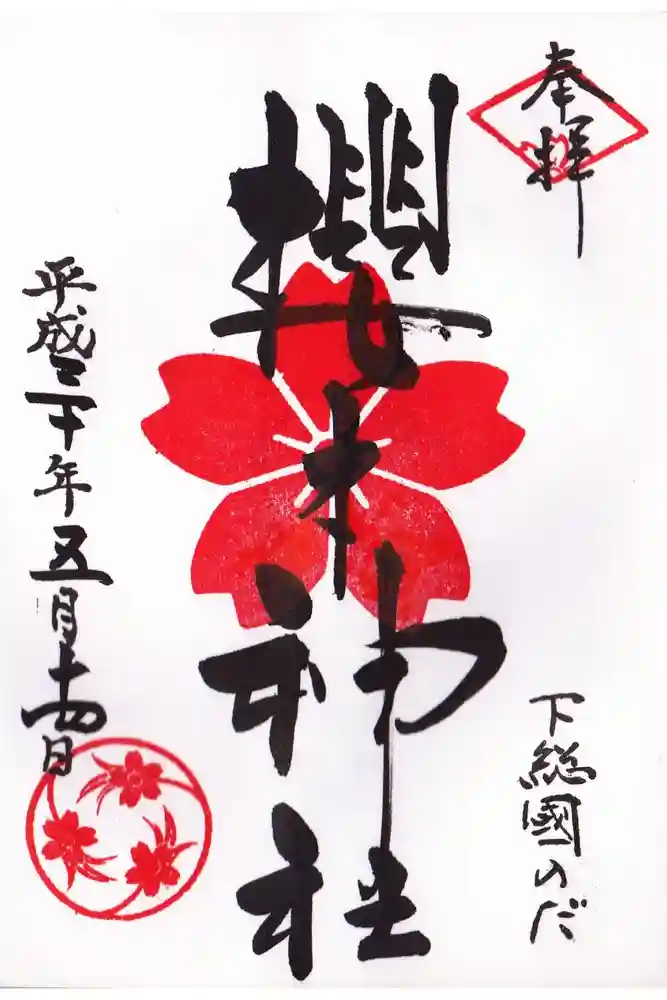 奉拝
櫻木神社
下総國のだ
平成三十年五月十四日